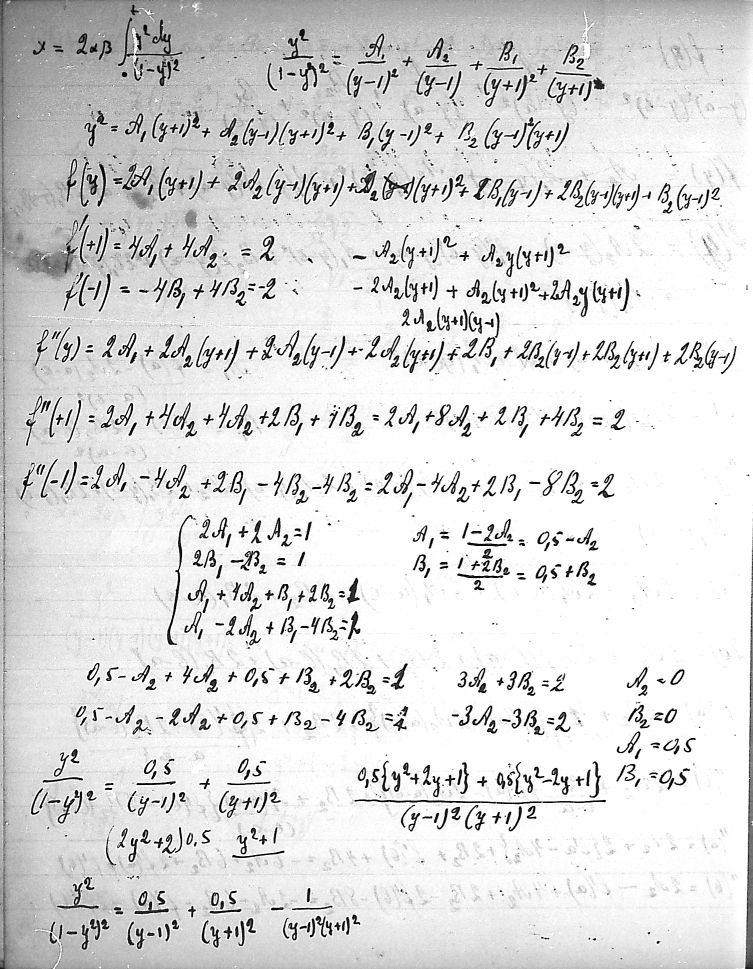 x = 2αβ ∫ y² dy / (1-y²)²     y²/(1-y²)² = A₁/(y-1)² + A₂/(y-1) + B₁/(y+1)² + B₂/(y+1)
y² = A₁(y+1)² + A₂(y-1)(y+1)² + B₁(y-1)² + B₂(y-1)²(y+1)
f'(y) = 2A₁(y+1) + 2A₂(y-1)(y+1) + A₂(y+1)² + 2B₁(y-1) + 2B₂(y-1)(y+1) + B₂(y-1)²
f'(+1) = 4A₁ + 4A₂ = 2     - A₂(y+1)² + A₂y(y+1)²
f'(-1) = -4B₁ + 4B₂ = -2     - 2A₂(y+1) + A₂(y+1)² + 2A₂y(y+1)
2A₂(y+1)(y-1)
f''(y) = 2A₁ + 2A₂(y+1) + 2A₂(y-1) + 2A₂(y+1) + 2B₁ + 2B₂(y-1) + 2B₂(y+1) + 2B₂(y-1)
f''(+1) = 2A₁ + 4A₂ + 4A₂ + 2B₁ + 4B₂ = 2A₁ + 8A₂ + 2B₁ + 4B₂ = 2
f''(-1) = 2A₁ - 4A₂ + 2B₁ - 4B₂ - 4B₂ = 2A₁ - 4A₂ + 2B₁ - 8B₂ = 2
2A₁ + 2A₂ = 1     A₁ = (1-2A₂)/2 = 0,5 - A₂
2B₁ - 2B₂ = 1     B₁ = (1+2B₂)/2 = 0,5 + B₂
A₁ + 4A₂ + B₁ + 2B₂ = 1
A₁ - 2A₂ + B₁ - 4B₂ = 1
0,5 - A₂ + 4A₂ + 0,5 + B₂ + 2B₂ = 1     3A₂ + 3B₂ = 2     A₂ = 0
0,5 - A₂ - 2A₂ + 0,5 + B₂ - 4B₂ = 1     -3A₂ - 3B₂ = 2     B₂ = 0
A₁ = 0,5
y²/(1-y²)² = 0,5/(y-1)² + 0,5/(y+1)²     0,5{y²+2y+1} + 0,5{y²-2y+1} / (y-1)²(y+1)²     B₁ = 0,5
(2y²+2)0,5     y²+1
y²/(1-y²)² = 0,5/(y-1)² + 0,5/(y+1)² - 1/(y-1)²(y+1)²